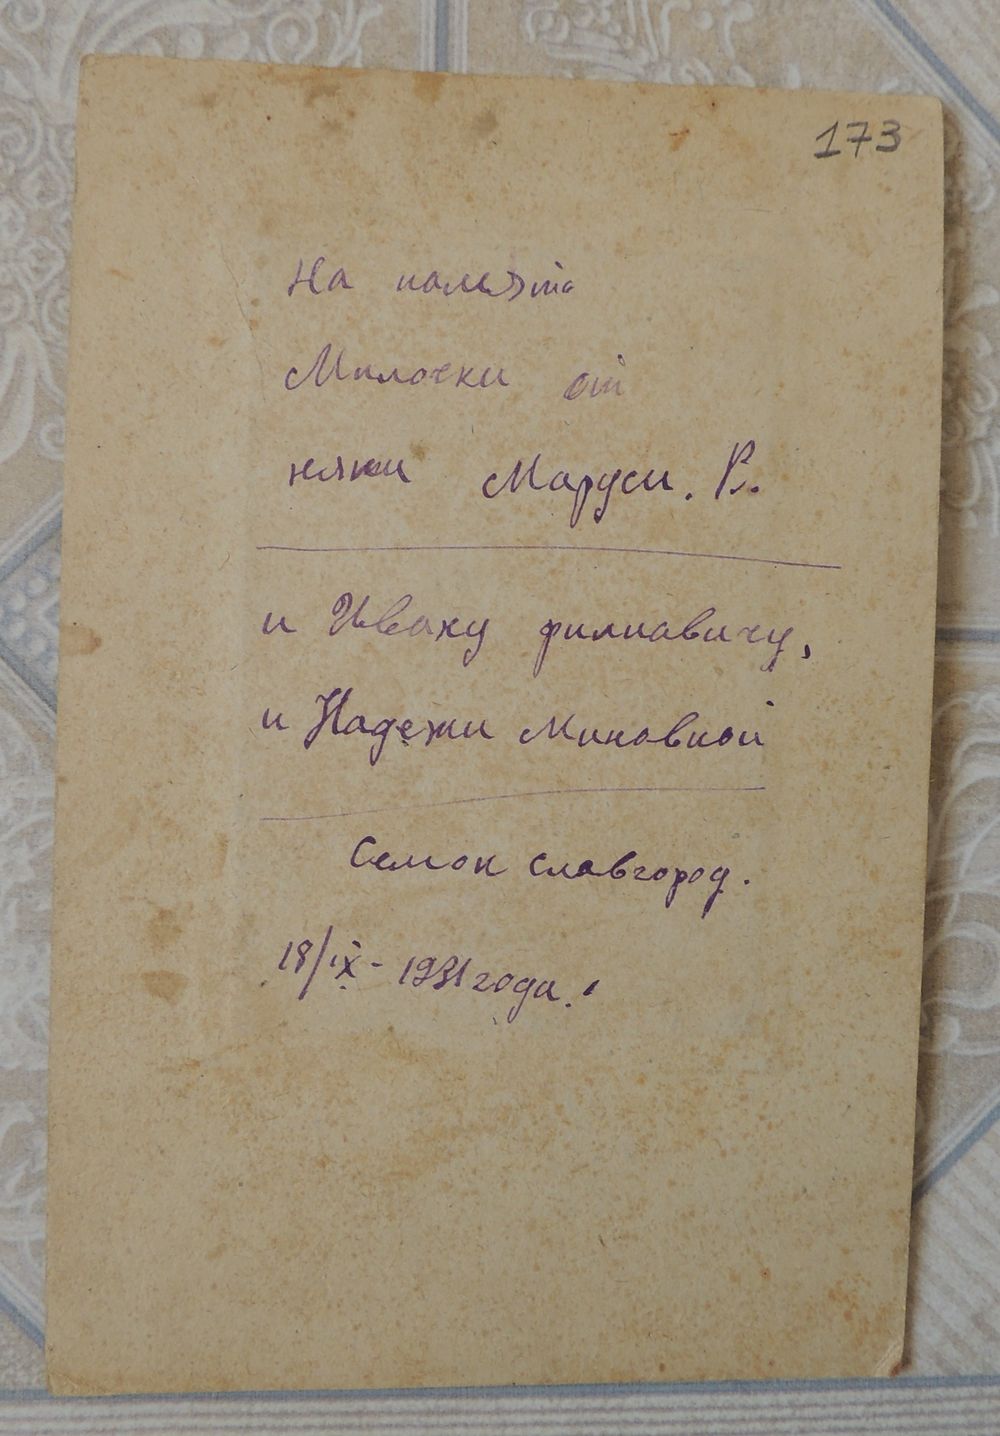 173
На
Милочки от
няни Маруси. В.
и Ивану филиавичу,
и Надежи Миновной
Семон славгород.
18/IX - 1931 года.